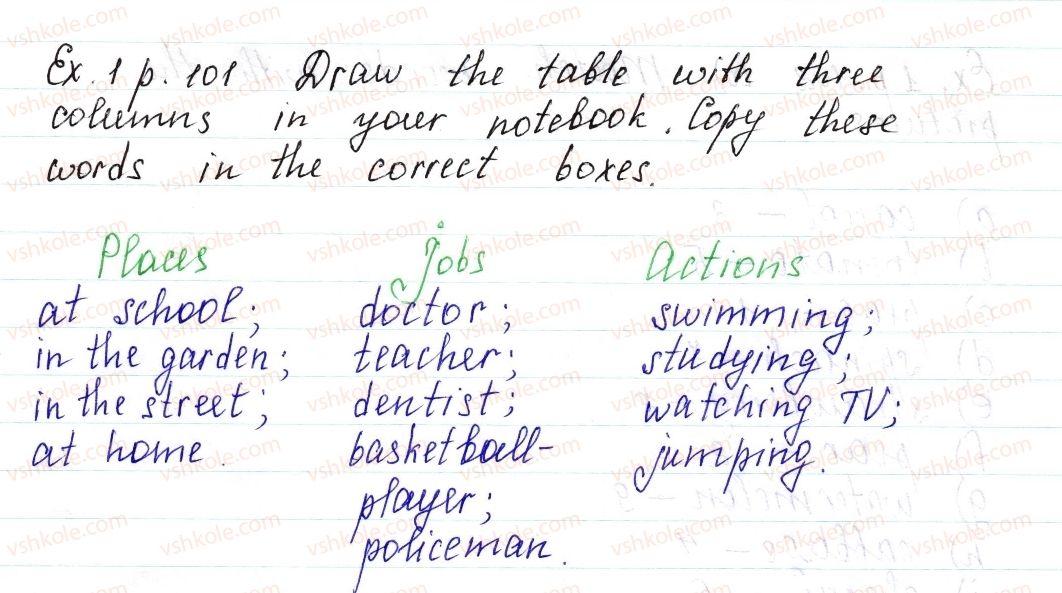 Ex. 1 p. 101 Draw the table with three
columns in your notebook. Copy these
words in the correct boxes.
Places jobs Actions
at school; doctor; swimming;
in the garden; teacher; studying;
in the street; dentist; watching TV;
at home. basketball- jumping.
player;
policeman.